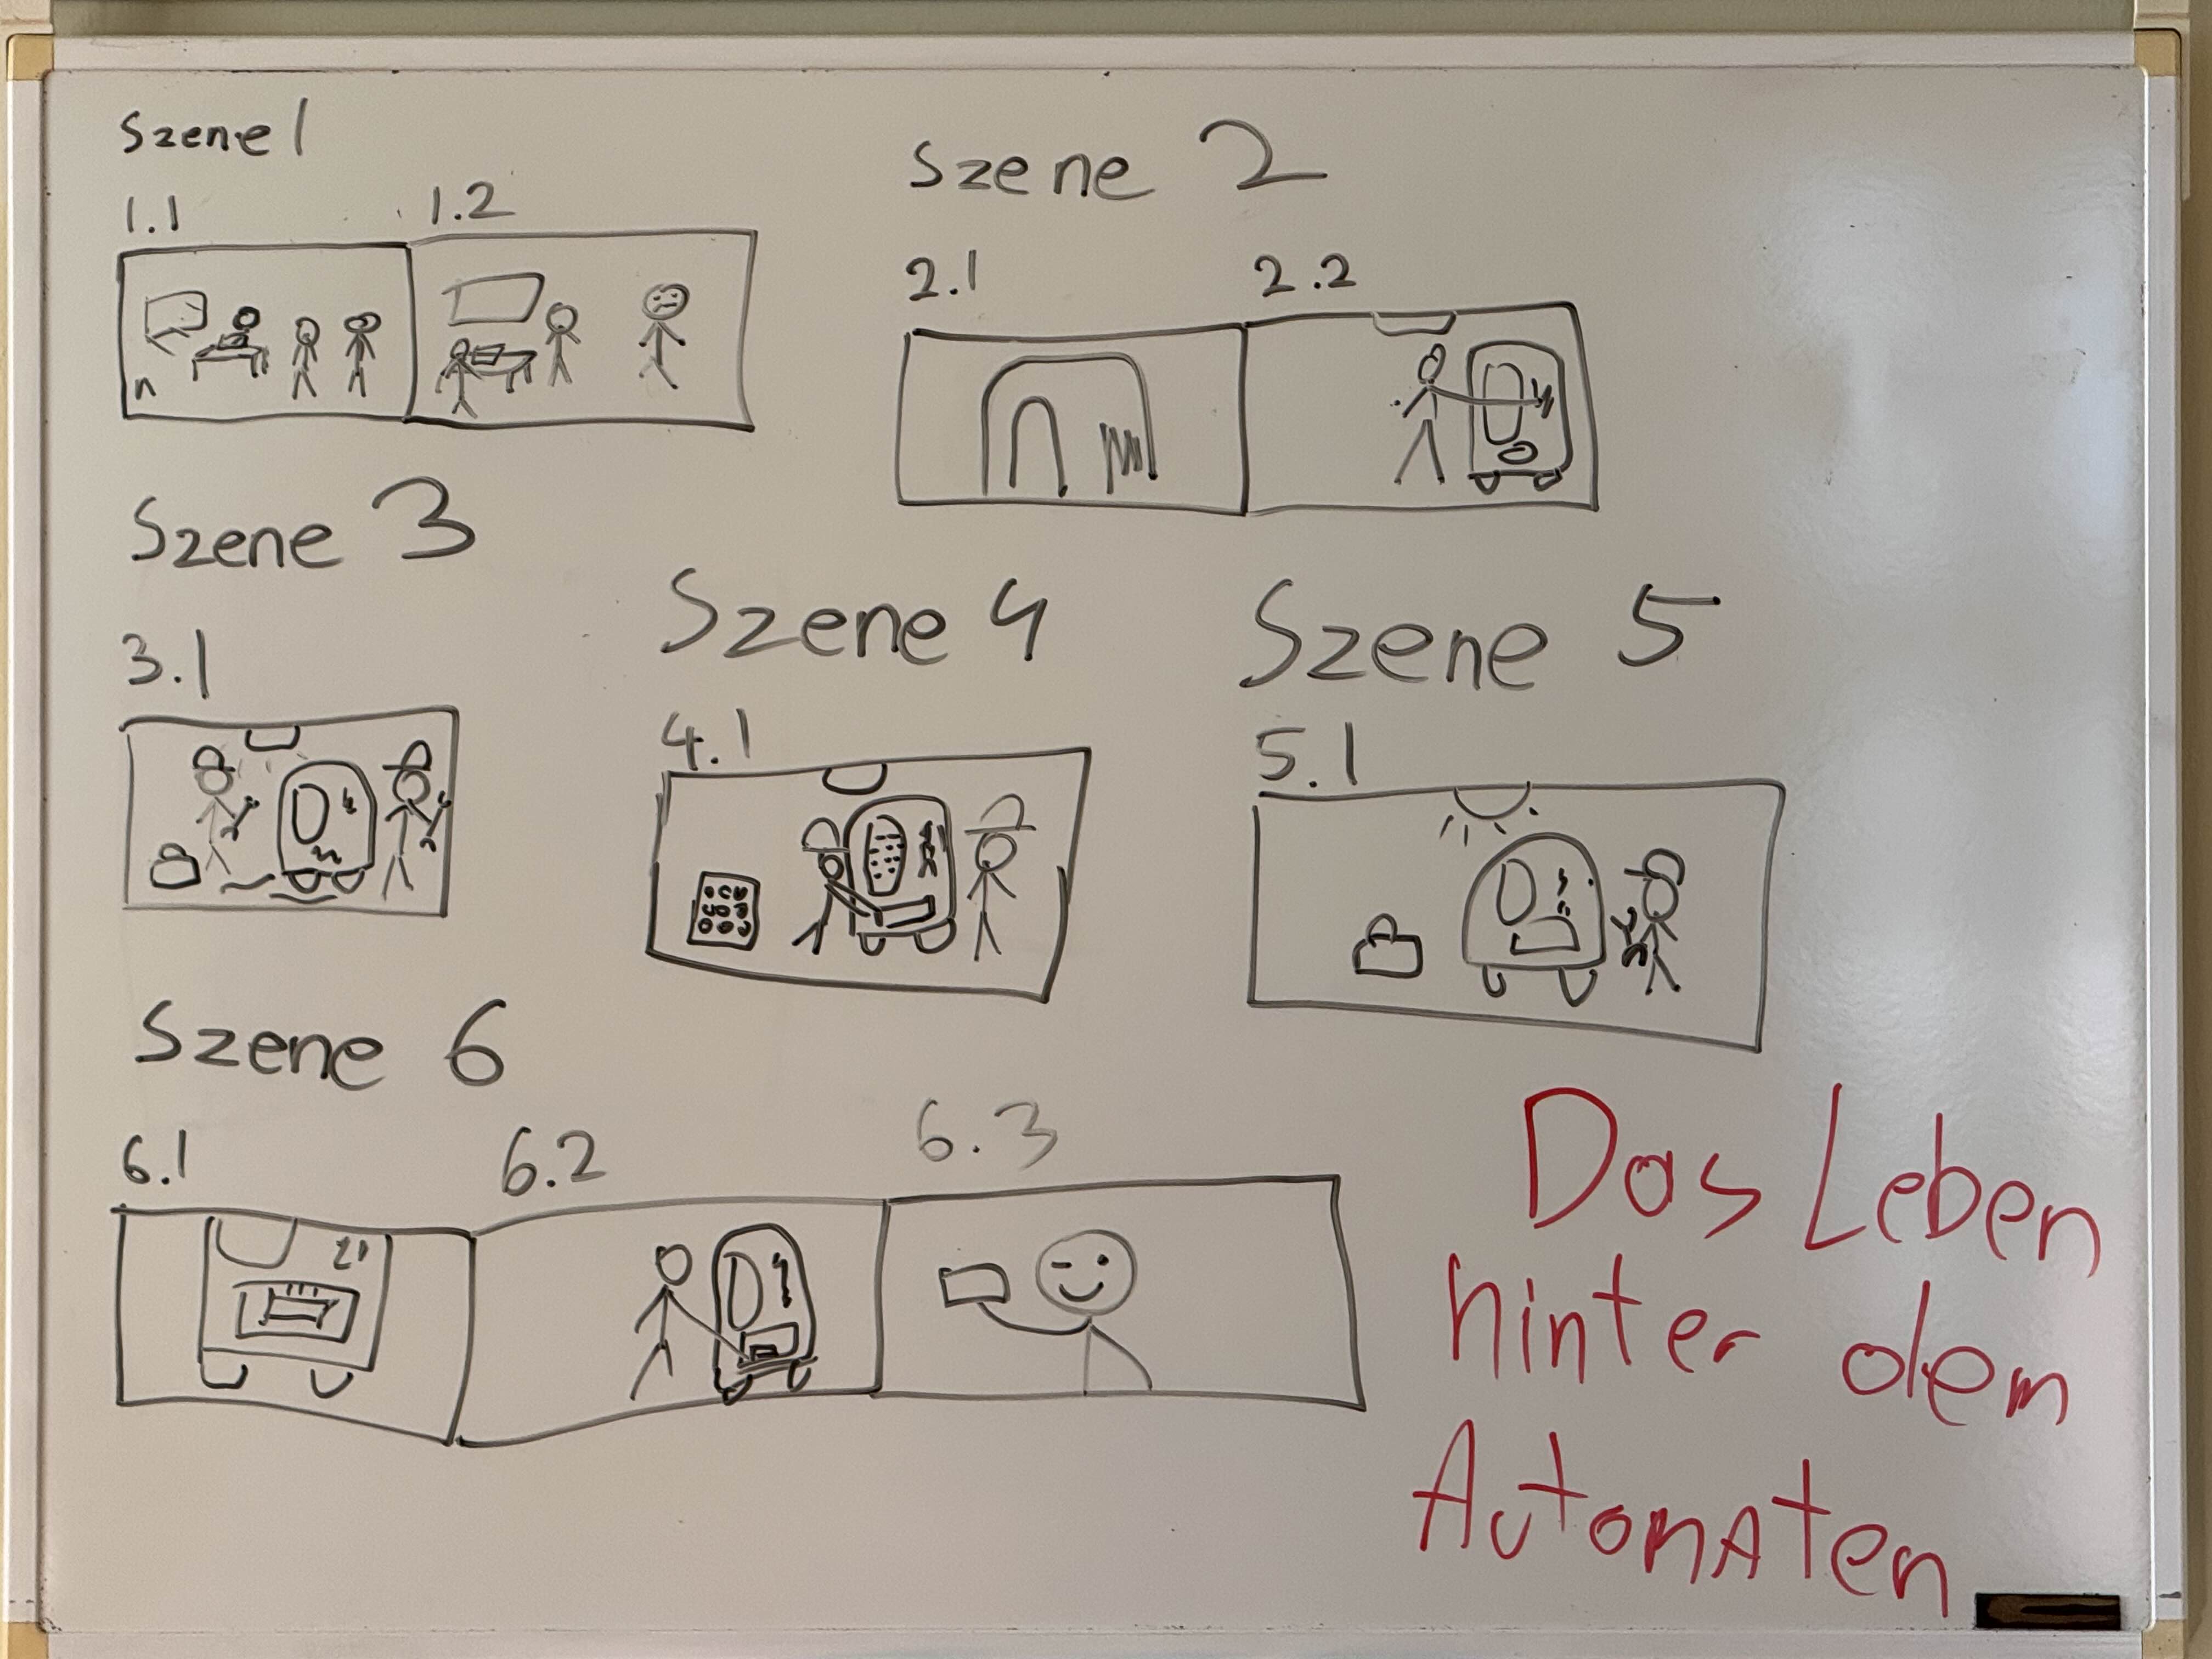 Szene 1
1.1 1.2
Szene 2
2.1 2.2
Szene 3
3.1
Szene 4
4.1
Szene 5
5.1
Szene 6
6.1 6.2 6.3
Das Leben
hinter dem
Automaten